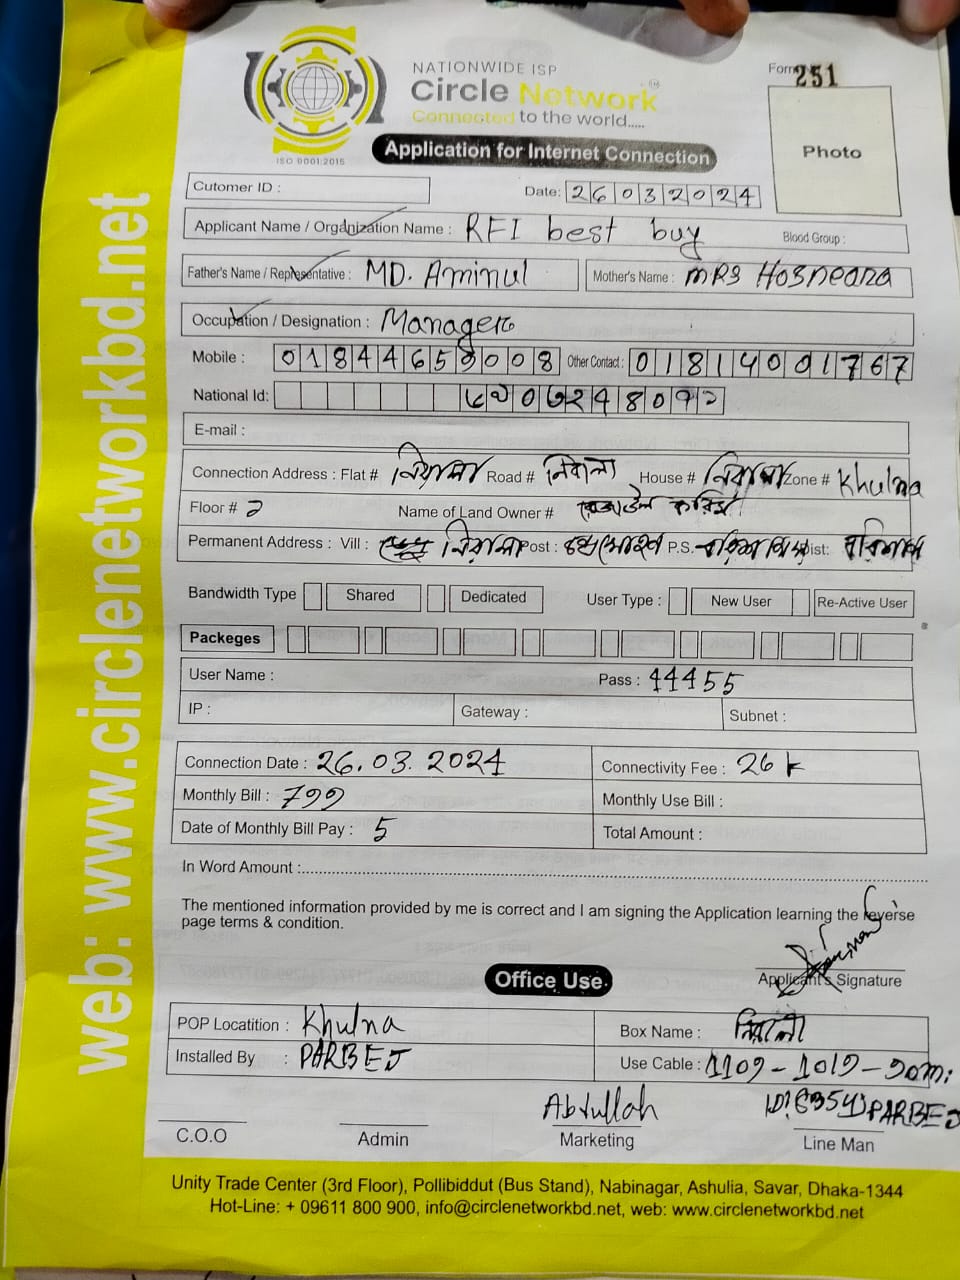 NATIONWIDE ISP
Circle Network
Connected to the world.....
ISO 9001:2015
Form 251
Photo
Application for Internet Connection
Cutomer ID :
Date: 26032024
Applicant Name / Organization Name : RFI best buy Blood Group :
Father's Name / Representative : MD. Aminul Mother's Name : MRS Hosneara
Occupation / Designation : Manager
Mobile : 01844659008 Other Contact : 01814001767
National Id:
E-mail :
Connection Address : Flat # Road # নিরালা House # Zone # Khulna
Floor # 2 Name of Land Owner #
Permanent Address : Vill : Post : P.S. Dist:
Bandwidth Type Shared Dedicated User Type : New User Re-Active User
Packeges
User Name : Pass : 44455
IP : Gateway : Subnet :
Connection Date : 26.03.2024 Connectivity Fee : 26 k
Monthly Bill : 799 Monthly Use Bill :
Date of Monthly Bill Pay : 5 Total Amount :
In Word Amount :
The mentioned information provided by me is correct and I am signing the Application learning the reverse
page terms & condition.
Applicant's Signature
Office Use
POP Locatition : Khulna Box Name :
Installed By : PARBEJ Use Cable :
Abdullah PARBEJ
C.O.O Admin Marketing Line Man
Unity Trade Center (3rd Floor), Pollibiddut (Bus Stand), Nabinagar, Ashulia, Savar, Dhaka-1344
Hot-Line: + 09611 800 900, info@circlenetworkbd.net, web: www.circlenetworkbd.net
web: www.circlenetworkbd.net